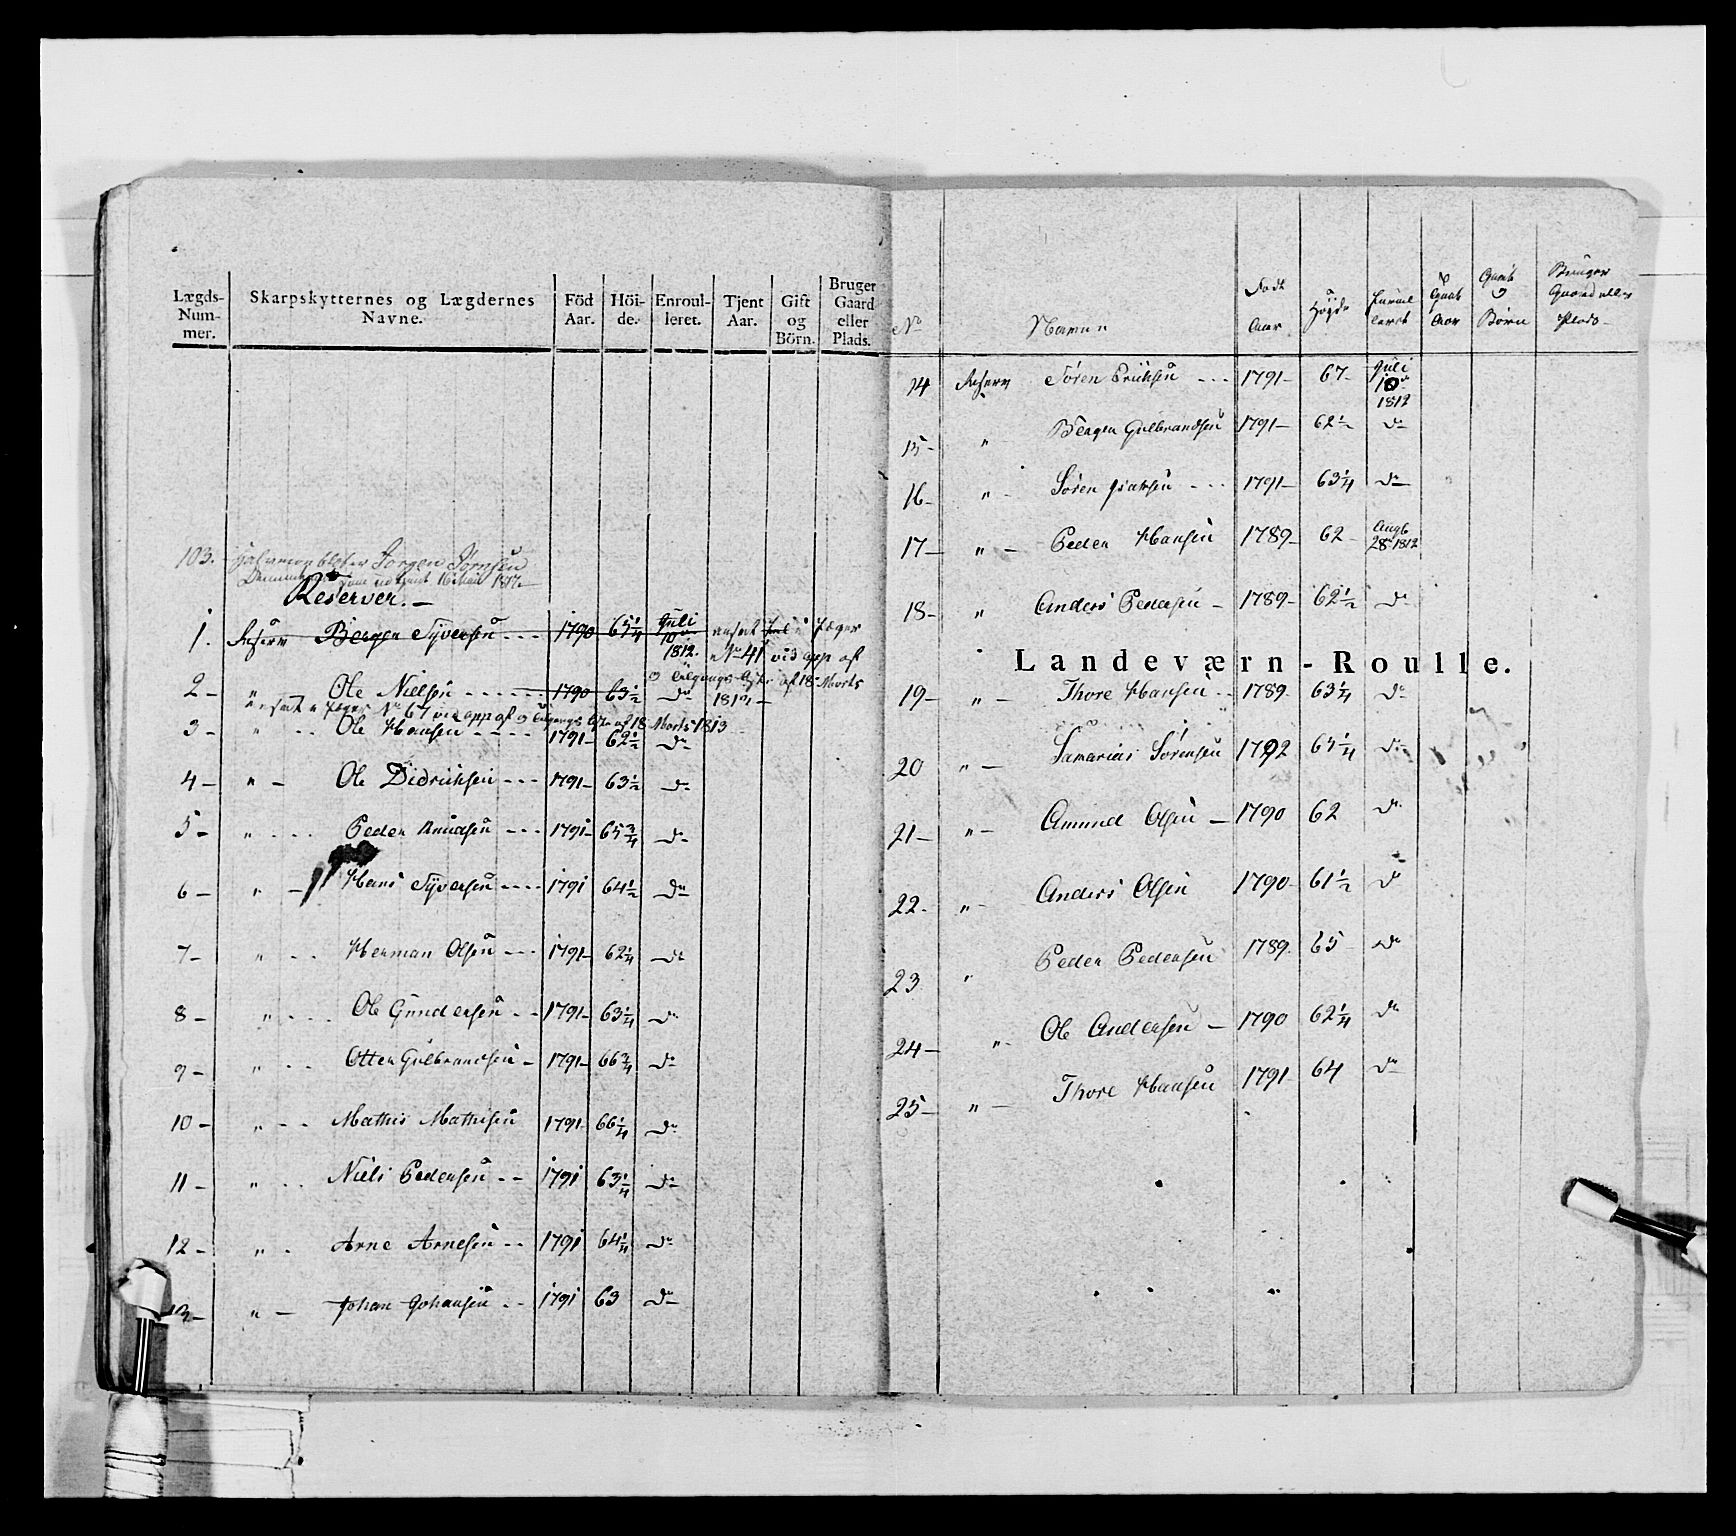 Lægds-Num-mer. Skarpskytternes og Lægdernes Navne. Föd Aar. Höi-de. Enroul-leret. Tjent Aar. Gift og Börn. Bruger Gaard eller Plads.
103. Jørgen
Reserver. —
1. Reserv Børger Syversen - - - 1790 65 1/4 Juli 10de 1812. ansat
No 41 vid app af
2 - " Ole Nielsen - - - 1790 63 1/2 Do
ansat Jæger No 67 vid app af 18 Marts 1813
3 - " - - Ole Hansen - - - 1791 - 62 1/2 Do
4 - " - Ole Didriksen - - - 1791 - 63 1/2 Do
5 - " - - - Peder Knudsen - - - 1791 - 65 3/4 Do
6 - " - Hans Syversen - - - - 1791 64 1/2 Do
7 - " - - Herman Olsen - - - 1791 - 62 1/4 Do
8 - " - - - Ole Gundersen - - 1791 - 63 1/4 Do
9 - " - - Otter Gulbrandsen - 1791 - 66 3/4 Do
10 - " - - Mathis Mathisen 1791 - 66 1/4 Do
11 - " - - Niels Pedersen - - 1791 63 1/4 Do
12 - " - Arne Arnesen - - 1791 64 1/4 Do
13 - " - Johan Johansen - - 1791 63 Do
No Navne Födt Aar Høyde Enroulleret Tient Aar Givt og Børn Bruger Gaard eller Plads
14 Reserv Søren Eriksen - - - 1791 - 67 - Juli 10de 1812
15 - " Børger Gulbrandsen 1791 - 62 1/2 Do
16 - " - Søren Isaksen - - - 1791 - 63 1/4 Do
17 - " - Peder Hansen 1789 - 62 - Augt 28de 1812
18 - " Anders Pedersen - 1789 - 62 1/2 Do
Landeværn-Roulle.
19 - " - Thore Hansen - - 1789 - 63 1/4 Do
20 " - Samarias Sørensen 1792 65 1/4 Do
21 - " - Amund Olsen - 1790 62 Do
22 - " - Anders Olsen 1790 - 61 1/2 Do
23 " Peder Pedersen 1789 - 65 Do
24 - " - Ole Andersen - 1790 62 1/4 Do
25 - " - Thore Hansen 1791 - 64 Do